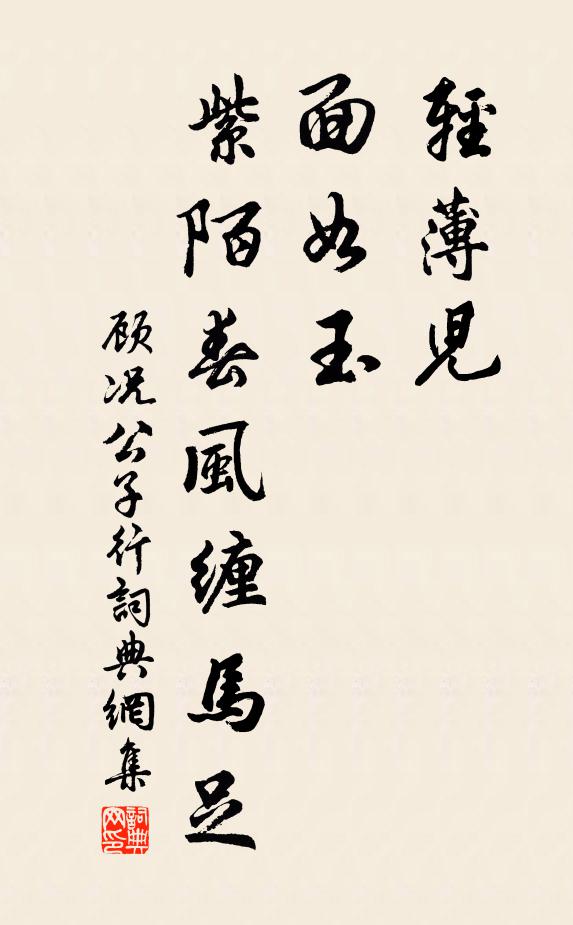 輕薄児
面如玉
紫陌春風纏馬足
顾况公子行詞典網集
詞典网印